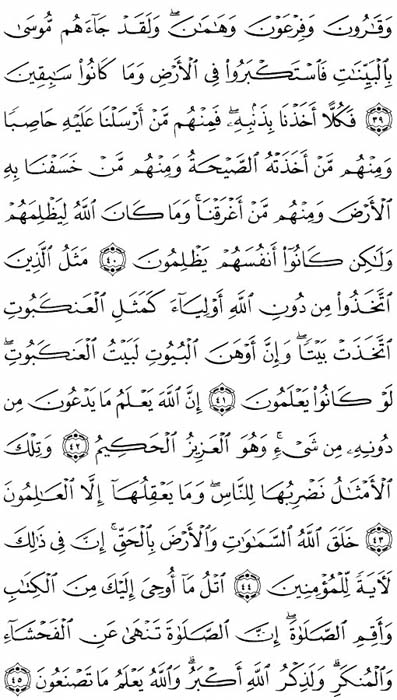 وَقَٰرُونَ وَفِرْعَوْنَ وَهَٰمَٰنَ ۖ وَلَقَدْ جَآءَهُم مُّوسَىٰ
بِٱلْبَيِّنَٰتِ فَٱسْتَكْبَرُوا۟ فِى ٱلْأَرْضِ وَمَا كَانُوا۟ سَٰبِقِينَ
٣٩ فَكُلًّا أَخَذْنَا بِذَنۢبِهِۦ ۖ فَمِنْهُم مَّنْ أَرْسَلْنَا عَلَيْهِ حَاصِبًا
وَمِنْهُم مَّنْ أَخَذَتْهُ ٱلصَّيْحَةُ وَمِنْهُم مَّنْ خَسَفْنَا بِهِ
ٱلْأَرْضَ وَمِنْهُم مَّنْ أَغْرَقْنَا ۚ وَمَا كَانَ ٱللَّهُ لِيَظْلِمَهُمْ
وَلَٰكِن كَانُوٓا۟ أَنفُسَهُمْ يَظْلِمُونَ ٤٠ مَثَلُ ٱلَّذِينَ
ٱتَّخَذُوا۟ مِن دُونِ ٱللَّهِ أَوْلِيَآءَ كَمَثَلِ ٱلْعَنكَبُوتِ
ٱتَّخَذَتْ بَيْتًا ۖ وَإِنَّ أَوْهَنَ ٱلْبُيُوتِ لَبَيْتُ ٱلْعَنكَبُوتِ ۖ
لَوْ كَانُوا۟ يَعْلَمُونَ ٤١ إِنَّ ٱللَّهَ يَعْلَمُ مَا يَدْعُونَ مِن
دُونِهِۦ مِن شَىْءٍ ۚ وَهُوَ ٱلْعَزِيزُ ٱلْحَكِيمُ ٤٢ وَتِلْكَ
ٱلْأَمْثَٰلُ نَضْرِبُهَا لِلنَّاسِ ۖ وَمَا يَعْقِلُهَآ إِلَّا ٱلْعَٰلِمُونَ
٤٣ خَلَقَ ٱللَّهُ ٱلسَّمَٰوَٰتِ وَٱلْأَرْضَ بِٱلْحَقِّ ۚ إِنَّ فِى ذَٰلِكَ
لَءَايَةً لِّلْمُؤْمِنِينَ ٤٤ ٱتْلُ مَآ أُوحِىَ إِلَيْكَ مِنَ ٱلْكِتَٰبِ
وَأَقِمِ ٱلصَّلَوٰةَ ۖ إِنَّ ٱلصَّلَوٰةَ تَنْهَىٰ عَنِ ٱلْفَحْشَآءِ
وَٱلْمُنكَرِ ۗ وَلَذِكْرُ ٱللَّهِ أَكْبَرُ ۗ وَٱللَّهُ يَعْلَمُ مَا تَصْنَعُونَ ٤٥